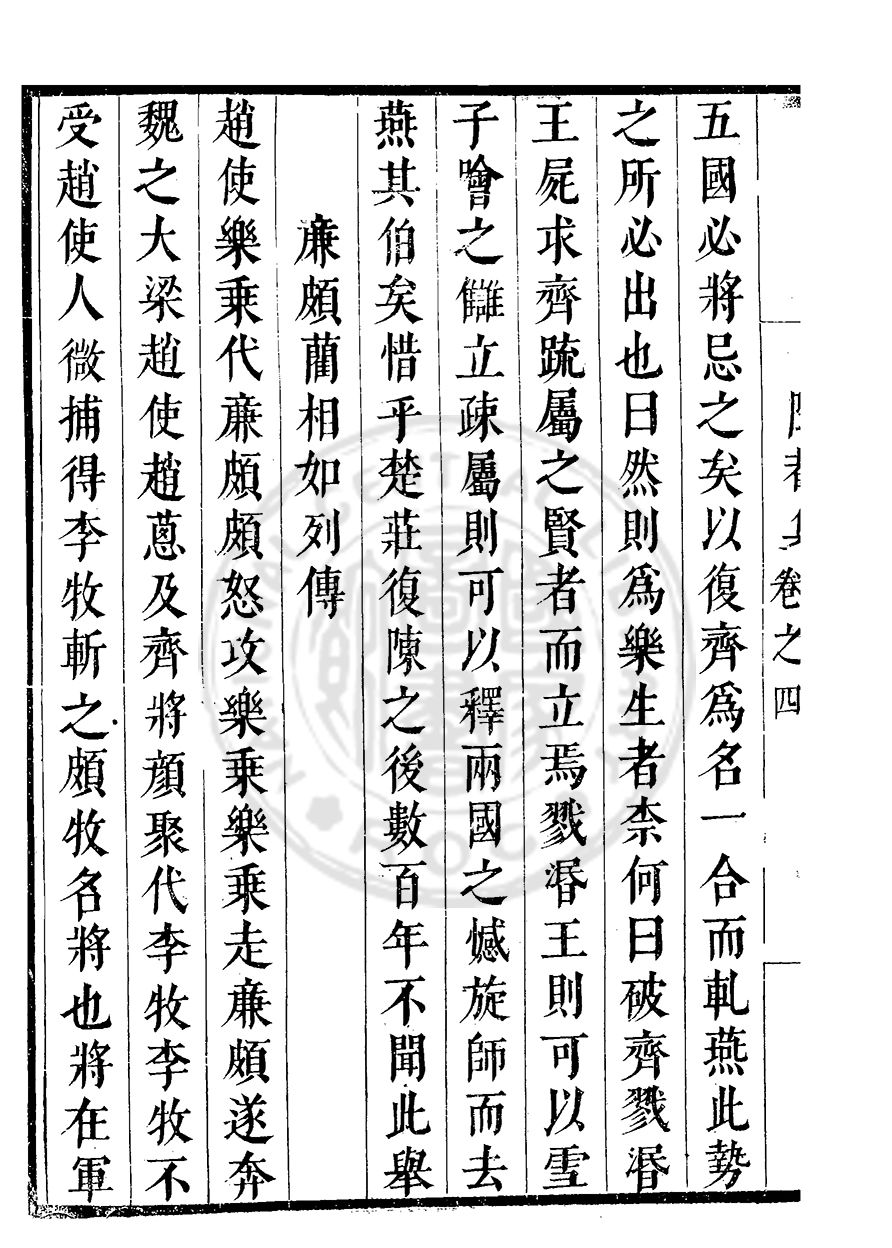 五國必將忌之矣以復齊爲名一合而軋燕此勢
之所必出也曰然則爲樂生者柰何曰破齊戮湣
王屍求齊疏屬之賢者而立焉戮湣王則可以雪
子噲之讎立疎屬則可以釋兩國之憾旋師而去
燕其伯矣惜乎楚莊復陳之後數百年不聞此舉
廉頗藺相如列傳
趙使樂乘代廉頗頗怒攻樂乘樂乘走廉頗遂奔
魏之大梁趙使趙蔥及齊將顔聚代李牧李牧不
受趙使人微捕得李牧斬之頗牧名將也將在軍
卷之四